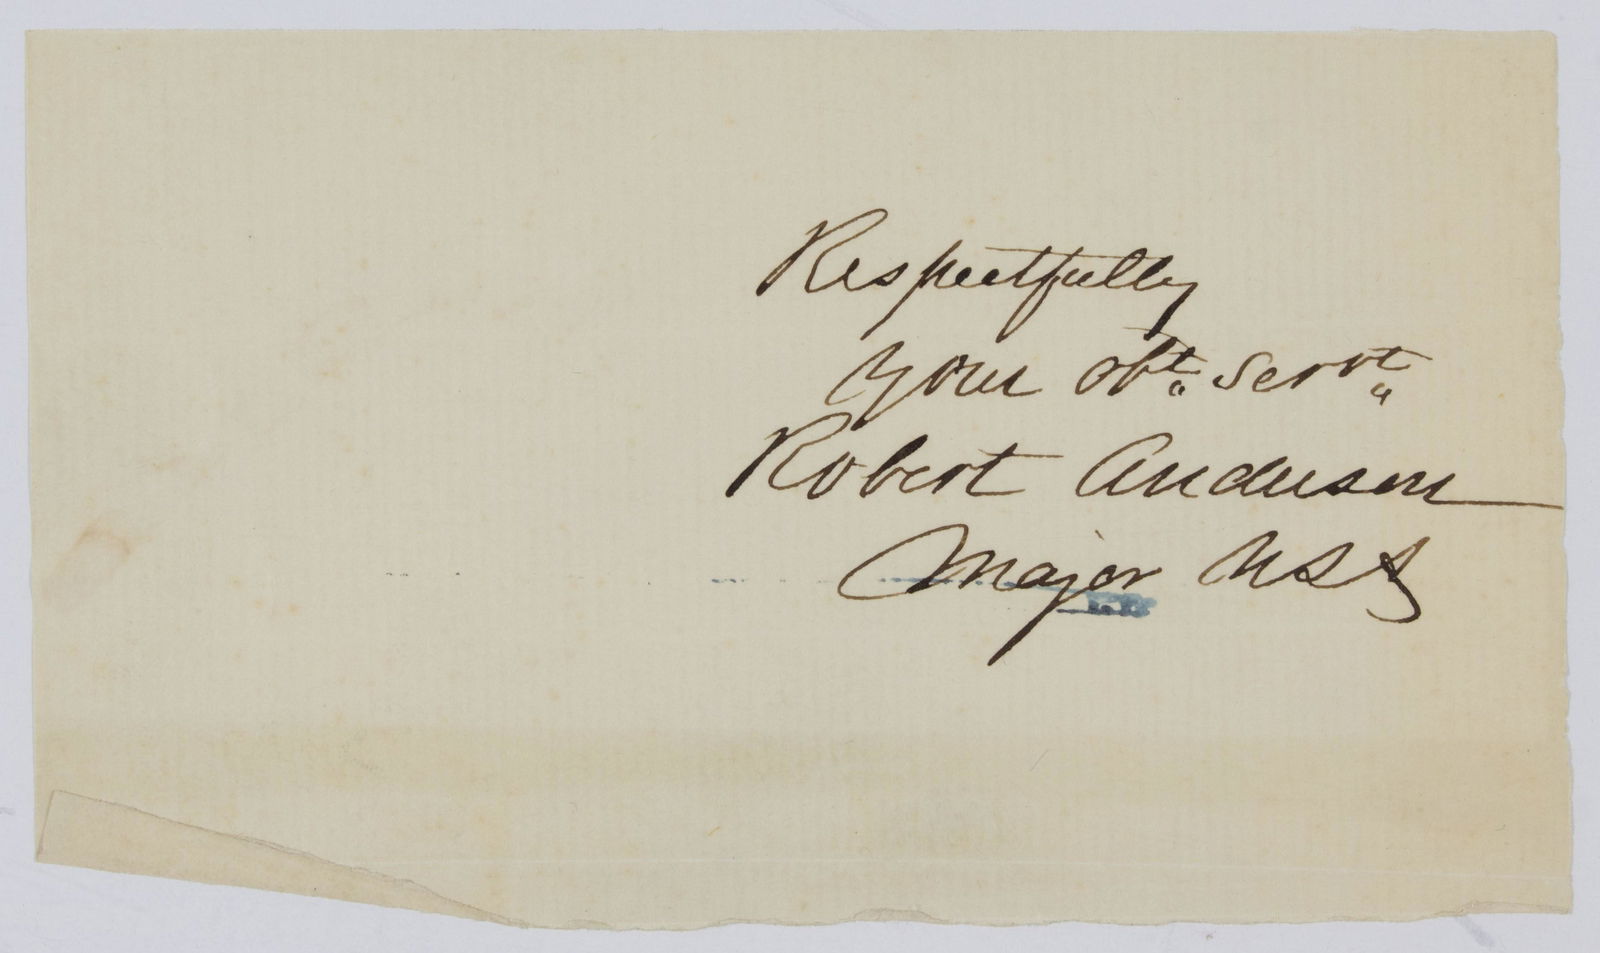 Respectfully
Your obt. servt.
Robert Anderson
Major USA